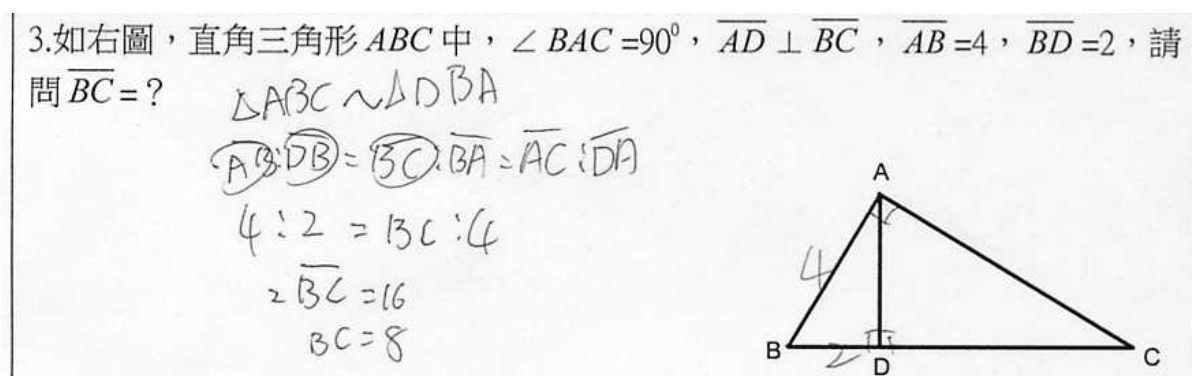 3.如右圖，直角三角形 ABC 中，∠ BAC =90⁰，A̅D̅ ⊥ B̅C̅，A̅B̅ =4，B̅D̅ =2，請
問 B̅C̅ = ?
△ABC ~ △DBA
A̅B̅:D̅B̅ = B̅C̅:B̅A̅ = A̅C̅:D̅A̅
4:2 = BC:4
2B̅C̅ = 16
BC = 8
A
4
B
2
D
C